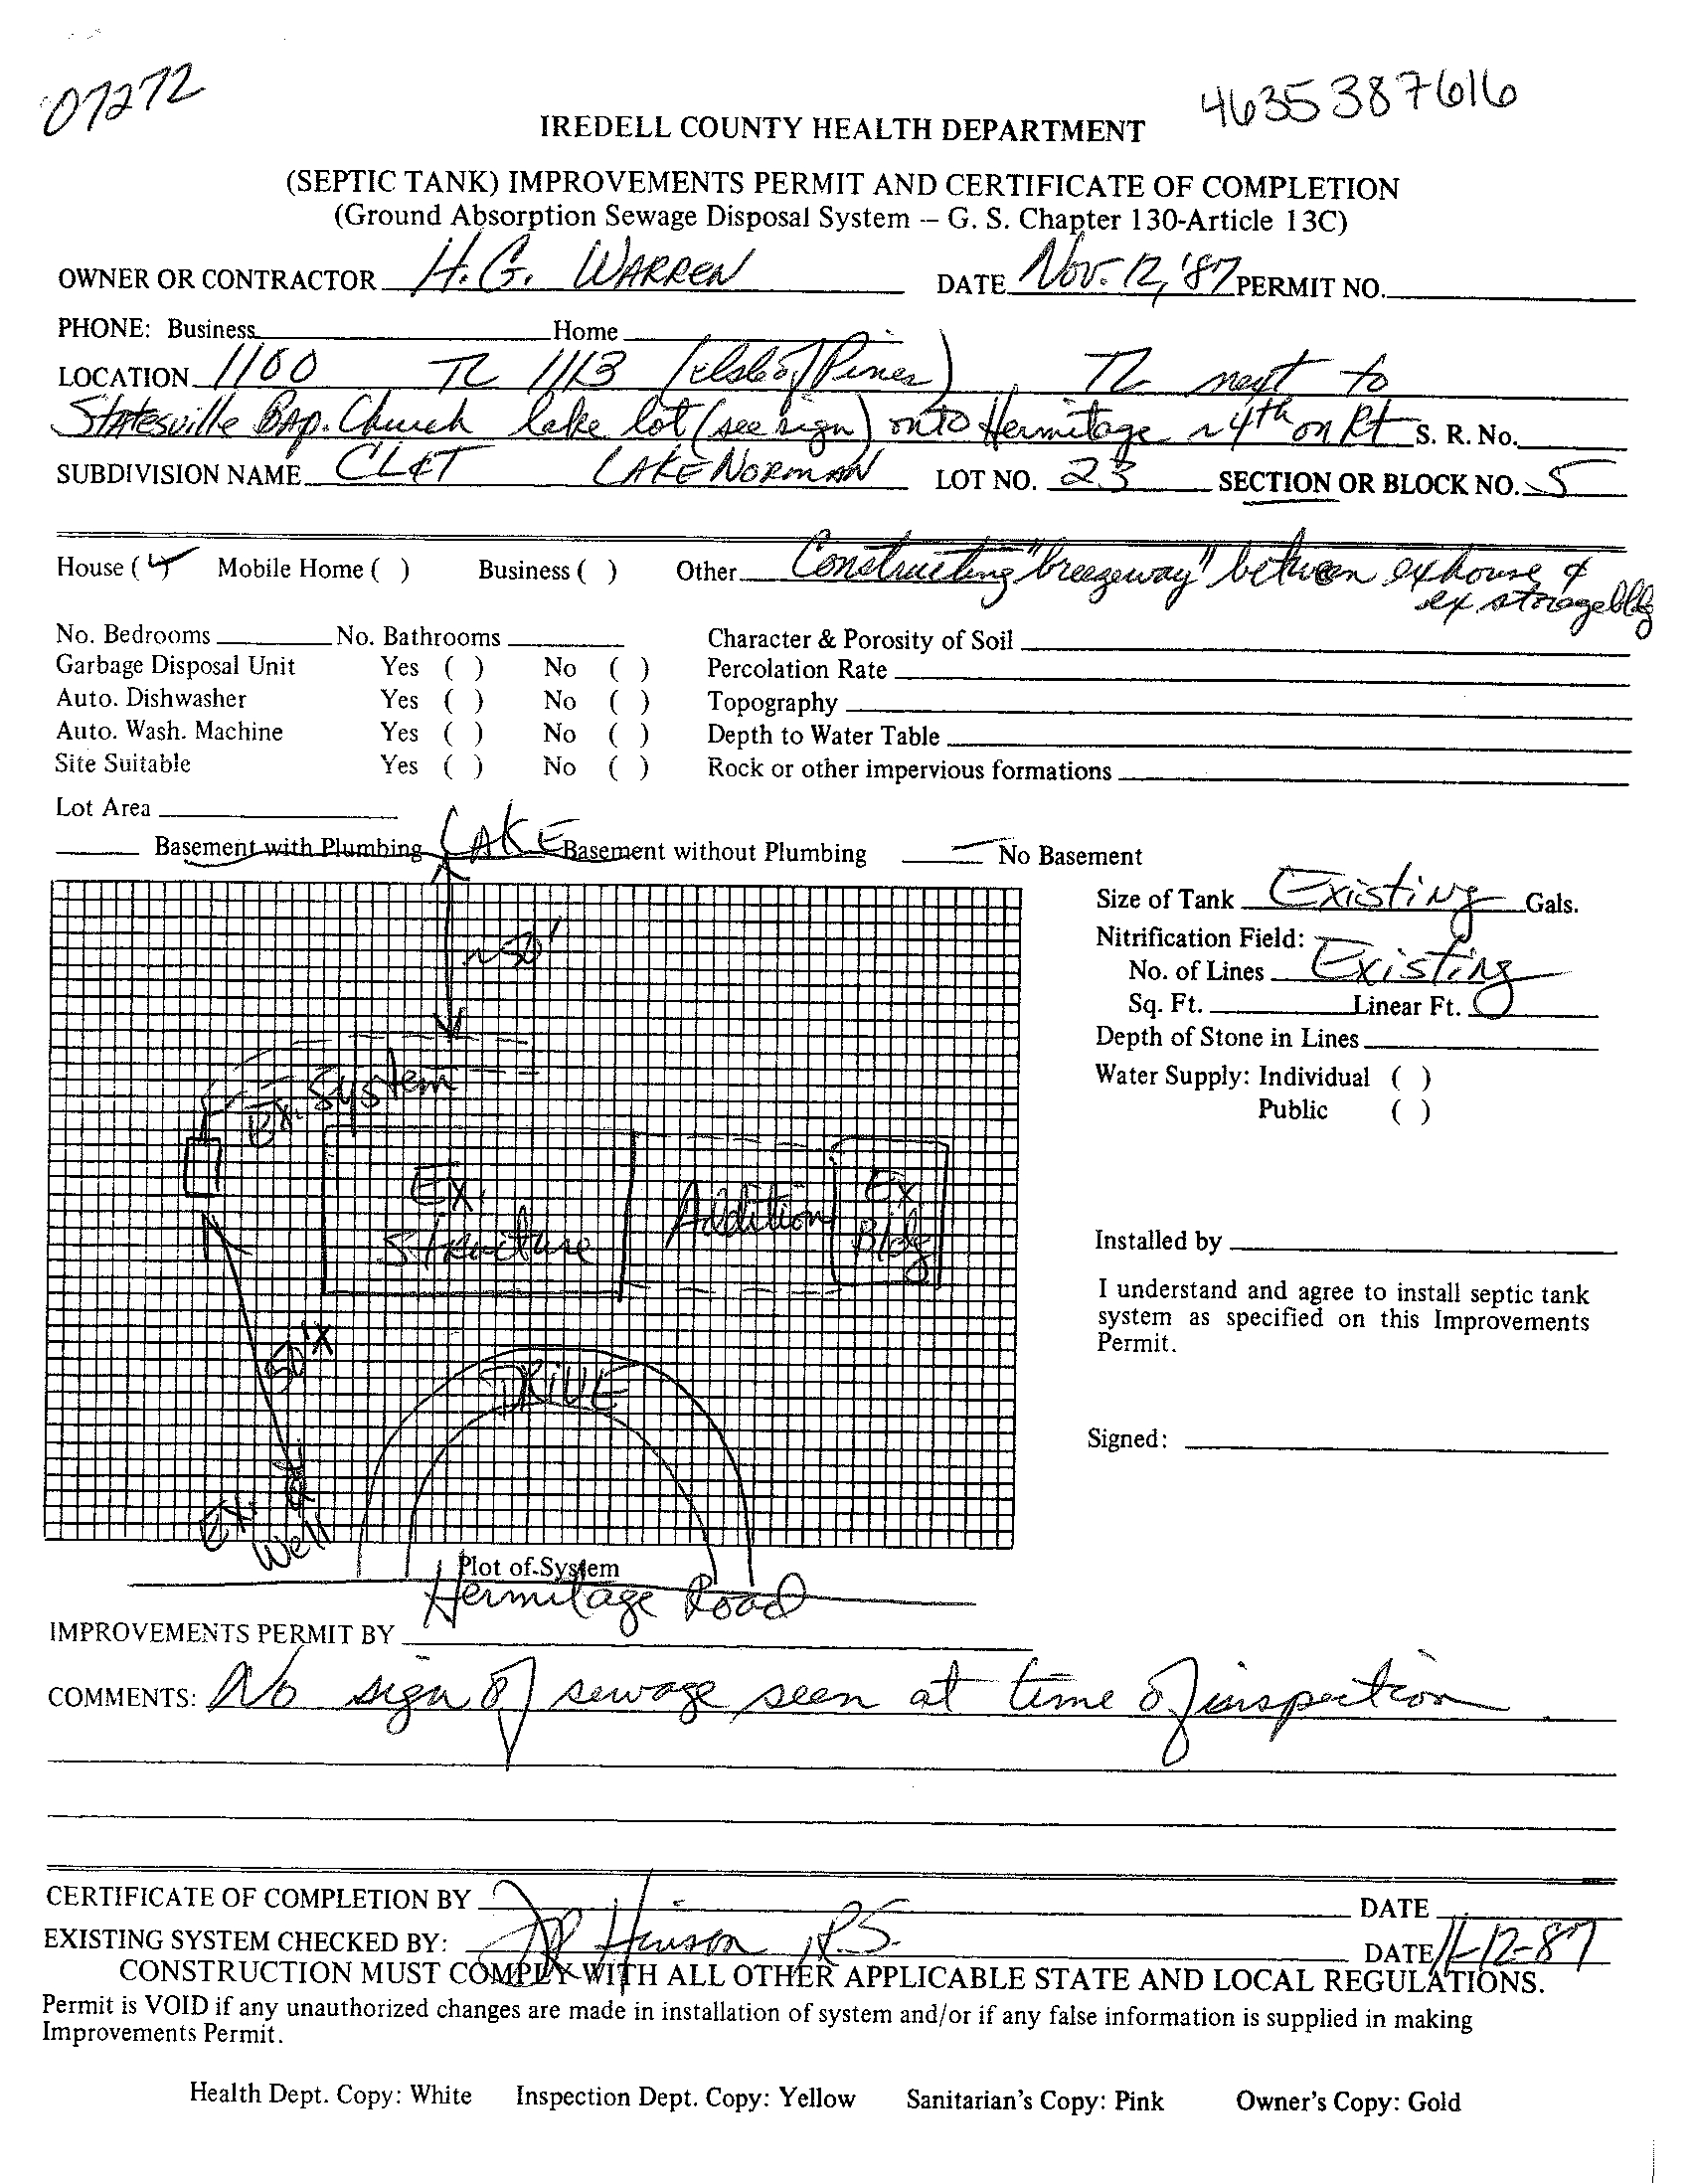 07272
4635387616
IREDELL COUNTY HEALTH DEPARTMENT
(SEPTIC TANK) IMPROVEMENTS PERMIT AND CERTIFICATE OF COMPLETION
(Ground Absorption Sewage Disposal System – G. S. Chapter 130-Article 13C)
OWNER OR CONTRACTOR H. G. WARREN DATE Nov. 12, '87 PERMIT NO.
PHONE: Business Home
LOCATION 1100 TL 1113 of Pines) TL next to
Statesville Bap. Church lake lot (see sign) onto Hermitage ~ 4th on Rt S. R. No.
SUBDIVISION NAME LAKE NORMAN LOT NO. 23 SECTION OR BLOCK NO. 5
House ( ) Mobile Home ( ) Business ( ) Other Constructing "breezeway" between ex house &
ex storage bldg
No. Bedrooms No. Bathrooms Character & Porosity of Soil
Garbage Disposal Unit Yes ( ) No ( ) Percolation Rate
Auto. Dishwasher Yes ( ) No ( ) Topography
Auto. Wash. Machine Yes ( ) No ( ) Depth to Water Table
Site Suitable Yes ( ) No ( ) Rock or other impervious formations
Lot Area
Basement with Plumbing LAKE Basement without Plumbing No Basement
Size of Tank Existing Gals.
Nitrification Field:
No. of Lines Existing
Sq. Ft. Linear Ft.
Depth of Stone in Lines
Water Supply: Individual ( )
Public ( )
~50'
Ex. System
Ex. Structure
Addition
Ex Bldg
50'
DRIVE
Ex. Well
Installed by
I understand and agree to install septic tank
system as specified on this Improvements
Permit.
Signed:
Plot of System
Hermitage Road
IMPROVEMENTS PERMIT BY
COMMENTS: No sign of sewage seen at time of inspection
CERTIFICATE OF COMPLETION BY DATE
EXISTING SYSTEM CHECKED BY: Hinson R.S. DATE 11-12-87
CONSTRUCTION MUST COMPLY WITH ALL OTHER APPLICABLE STATE AND LOCAL REGULATIONS.
Permit is VOID if any unauthorized changes are made in installation of system and/or if any false information is supplied in making
Improvements Permit.
Health Dept. Copy: White Inspection Dept. Copy: Yellow Sanitarian's Copy: Pink Owner's Copy: Gold